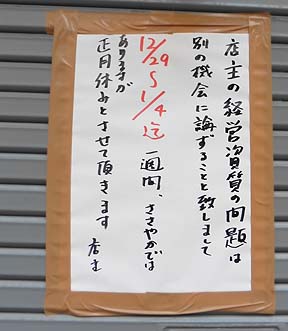 店主の経営資質の問題は
別の機会に論ずることと致しまして
12/29〜1/4迄
一週間、ささやかでは
ありますが
正月休みとさせて頂きます
店主